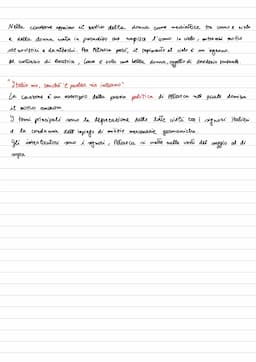 Nella canzone appare il motivo della donna come mediatrice tra uomo e cielo
e della donna nata in paradiso che rapisce l'uomo in cielo, entrambi motivi
stilnovistici e danteschi. Per Petrarca però, il rapimento al cielo è un inganno.
Al contrario di Beatrice, Laura è solo una bella donna, oggetto di desiderio
"Italia mia, benché 'l parlar sia indarno"
La canzone è un esempio della poesia politica di Petrarca nella quale domina
il motivo
I temi principali sono la deprecazione delle lotte civili tra i signori italiani
e la condanna dell'impiego di milizie mercenarie germaniche.
Gli interlocutori sono i signori, Petrarca si mette nelle vesti del saggio al di
sopra